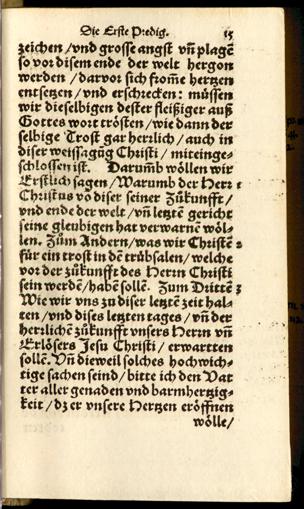 Die Erste Predig. 15
zeichen / vnd grosse angst vn̄ plagē
so vor disem ende der welt hergon
werden / darvor sich from̄e hertzen
entsetzen / vnd erschrecken: müssen
wir dieselbigen dester fleißiger auß
Gottes wort trösten / wie dann der
selbige Trost gar herrlich / auch in
diser weissagūg Christi / miteinge-
schlossen ist. Darum̄b wöllen wir
Erstlich sagen / Warumb der Herr 1
Christus vō diser seiner Zůkunfft /
vnd ende der welt / vn̄ letstē gericht
seine gleubigen hat verwarnē wöl-
len. Zům Andern / was wir Christē 2
für ein trost in dē trübsalen / welche
vor der zůkunfft des Herrn Christi
sein werdē / habē sollē. Zum Drittē 3
Wie wir vns zu diser letstē zeit hal-
ten / vnd dises letsten tages / vn̄ der
herrlichē zůkunfft vnsers Herrn vn̄
Erlösers Jesu Christi / erwartten
sollē. Vn̄ dieweil solches hochwich-
tige sachen seind / bitte ich den Vat
ter aller genaden vnd barmhertzig-
keit / dz er vnsere Hertzen eröffnen
wölle /